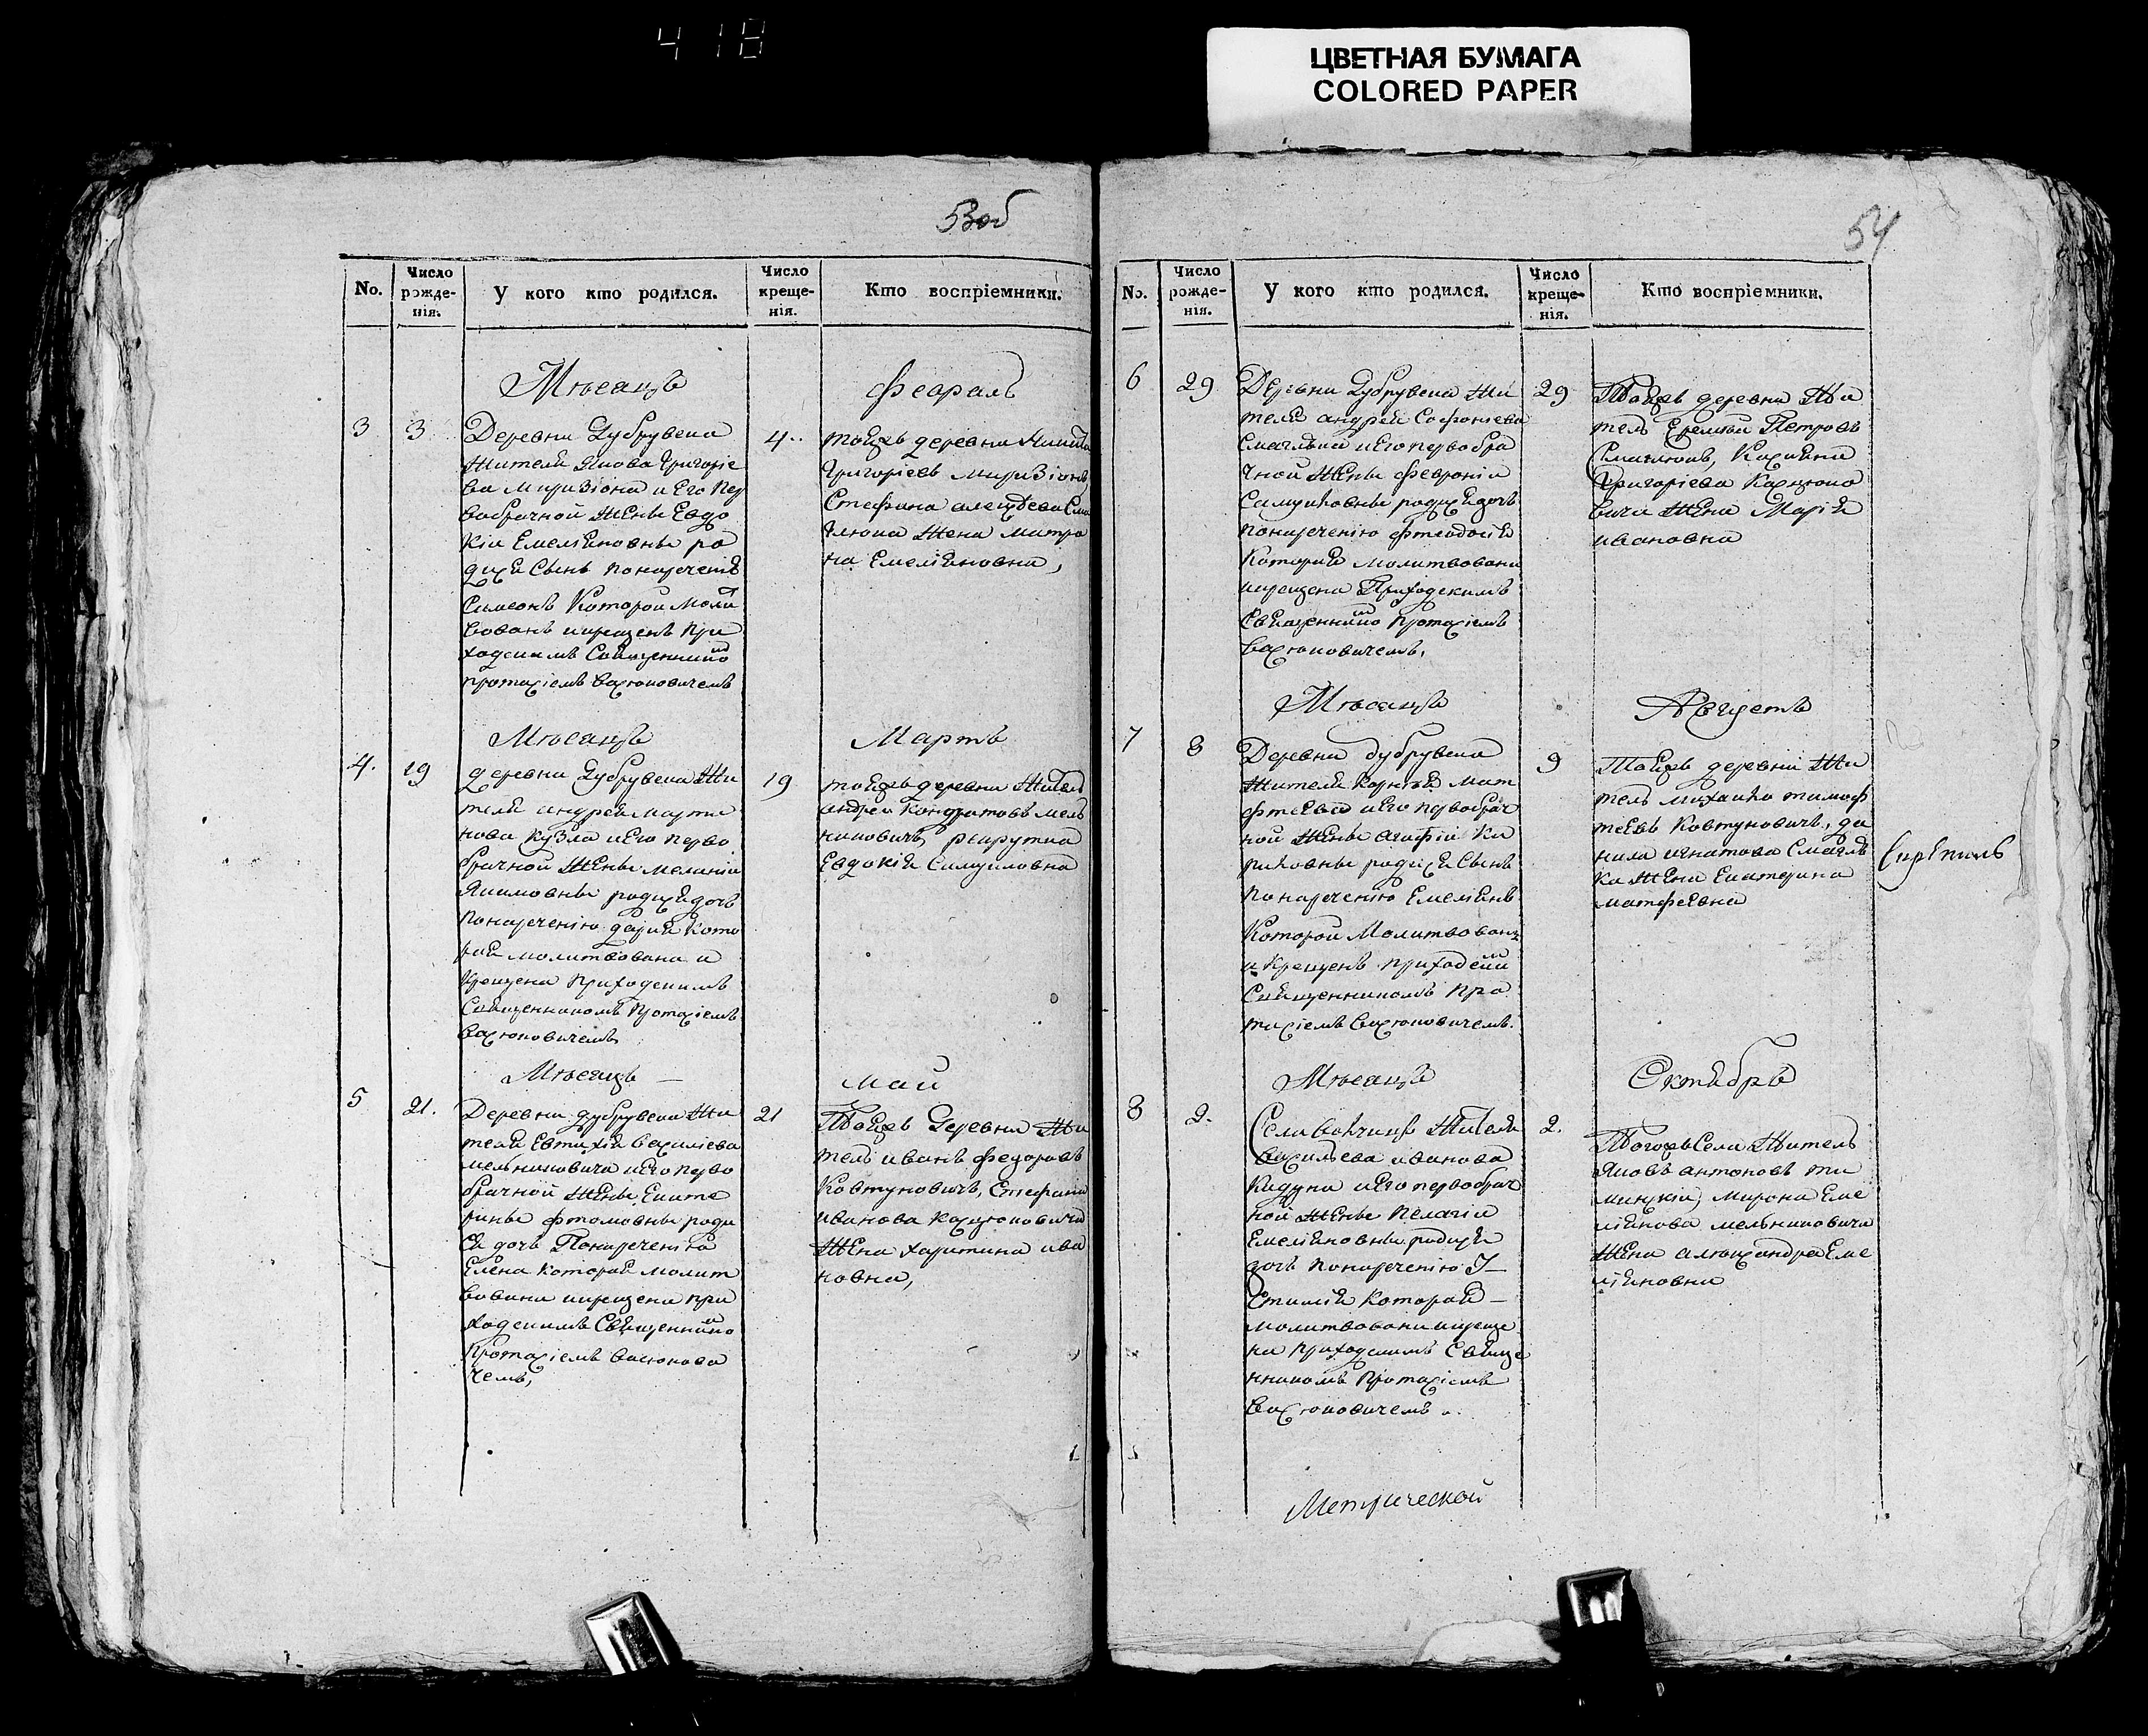 418
ЦВЕТНАЯ БУМАГА
COLORED PAPER
53об
No.
Число рожде- нія.
У кого кто родился.
Число креще- нія.
Кто воспріемники.
Мѣсяцъ
Февраль
3
3
Деревни Дубрувена
Жителя Якова Григоріе
ва и Его пер
вобрачной Жены Евдо
кіи Емеліяновны ро
дился Сынъ
Симеонъ Которой Молит
вованъ и крещенъ При
ходскимъ Священнико
Протасіемъ Васюковичемъ
4
тояжъ деревни
Григоріевъ
Стефана
Жена Матро
на Емеліяновна,
Мѣсяцъ
Мартъ
4.
19
деревни Дубрувена Жи
теля андрея Марти
нова Кузла и Его перво
брачной Жены Меланіи
Якимовны родися дочь
По нареченію дарія Кото
рая молитвована и
крещена Приходскимъ
Священникомъ Протасіемъ
Васюковичемъ
19
тояжъ деревни Житель
андрей Кондратовъ Мель
никовичъ, рекрутка
Евдокія Самуиловна
Мѣсяцъ
Май
5
21.
Деревни дубрувена Жи
теля Евтихія Василіева
мельниковича и Его перво
брачной Жены Екате
рины фтомовны роди
ся дочь По нареченію
Елена Которая молит
вована и крещена при
ходскимъ Священнико
Протасіемъ Васюкови
чемъ,
21
Тояжъ Деревни Жи
тель иванъ федоровъ
Ковтуновичъ, Стефана
иванова Касцюковича
Жена харитина ива
новна,
54
No.
Число рожде- нія.
У кого кто родился.
Число креще- нія.
Кто воспріемники.
6
29
Деревни Дубрувена Жи
теля андрея Софоніева
Смагляка и Его первобра
чной Жены февроніи
Самуиловны родися дочь
По нареченію фтеодосія
Которая молитвована
и крещена Приходскимъ
Священнико Протасіемъ
Васюковичемъ.
29
Тояжъ деревни Жи
тель Еремѣй Петровъ
Григоріева Касцюко
вича Жена Марія
ивановна
Мѣсяцъ
Августъ
7
8
Деревни дубрувена
Жителя Корнѣя Мат
фтеева и Его первобрач
ной Жены агафіи Ки
риловны родися Сынъ
По нареченію Емеліянъ
Которой Молитвованъ
и Крещенъ приходским
Священникомъ Про
тасіемъ Васюковичемъ.
9
Тояжъ деревни Жи
тель Михайло тимоф
теевъ Ковтуновичъ, да
нила игнатова Смагля
ка Жена Екатерина
матфеевна
Мѣсяцъ
Октябрь
8
2.
Села Жителя
Василіева иванова
Кадуна и Его первобрач
ной Жены Пелагіи
Емеліяновны родися
дочь По нареченію
Которая
молитвована и креще
на приходскимъ Свяще
нникомъ Протасіемъ
Васюковичемъ.
2.
Тогожъ Села Житель
Яковъ антоновъ
Мирона Еме
ліянова мельниковича
Жена александра Еме
ліяновна
Метрической